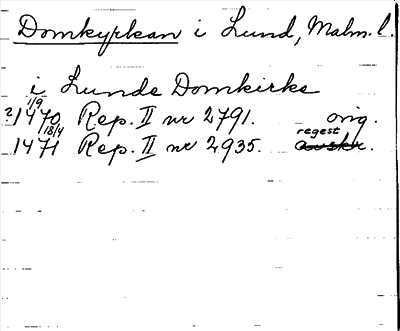 Domkyrkan i Lund, Malm. l.
i Lunde Domkirke
?1470 1/9 Rep. II nr 2791. orig.
1471 18/4 Rep. II nr 2935. regest avskr.